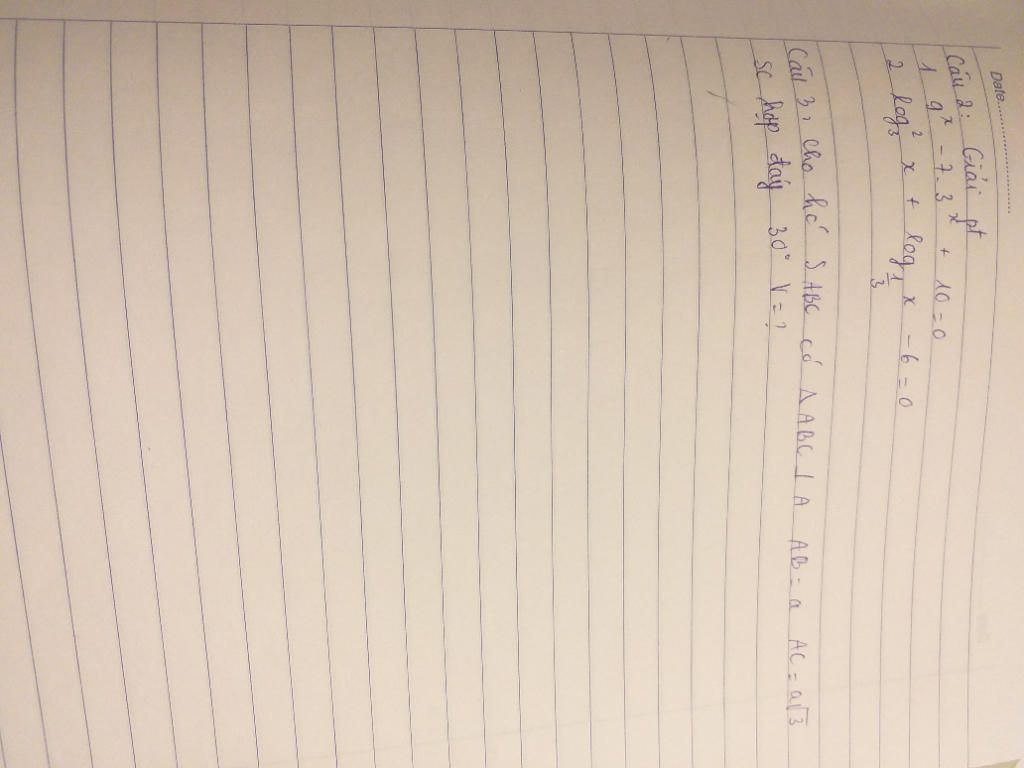 Date.....................
Câu 2: Giải pt
1 9ˣ - 7.3ˣ + 10 = 0
2 log₃² x + log_{1/3} x - 6 = 0
Câu 3, Cho h/c SABC có Δ ABC ⊥ A AB = a AC = a√3
SC hợp đáy 30° V = ?